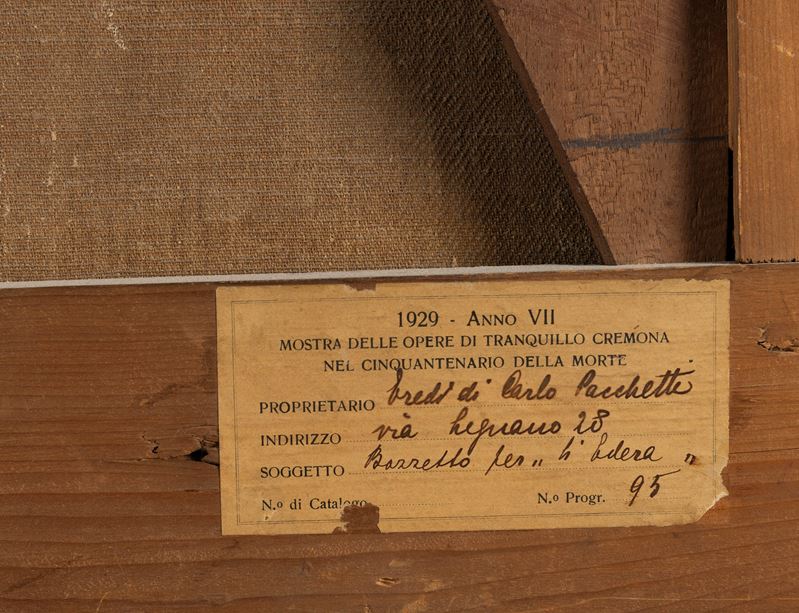 1929 - ANNO VII
MOSTRA DELLE OPERE DI TRANQUILLO CREMONA
NEL CINQUANTENARIO DELLA MORTE
PROPRIETARIO Eredi di Carlo Pacchetti
INDIRIZZO via Legnano 28
SOGGETTO Bozzetto per „ L'Edera „
N.º di Catalogo
N.º Progr. 95